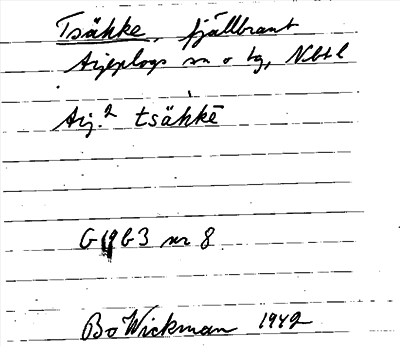 Tsähke, fjällbrant
Arjeplogs sn o tg, Nbtl
Arj.² tsähkē
G 19 b 3 nr 8
Bo Wickman 1942